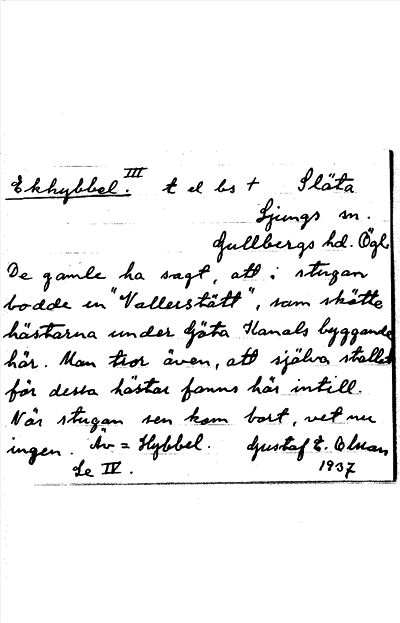 Ekhybbel. III t el bs + Släta
Ljungs sn.
Gullbergs hd. Ögl.
De gamle ha sagt, att i stugan
bodde en "Vallerstätt", som skötte
hästarna under Göta Kanals byggande
här. Man tror även, att själva stallet
för dessa hästar fanns här intill.
När stugan sen kom bort, vet nu
ingen. Äv = Hybbel. Gustaf E. Olsson
Se IV. 1937